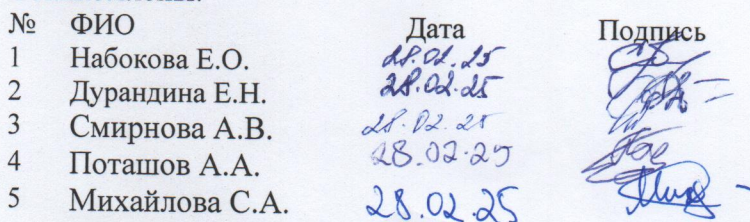 № ФИО Дата Подпись
1 Набокова Е.О. 28.02.25
2 Дурандина Е.Н. 28.02.25
3 Смирнова А.В. 28.02.25
4 Поташов А.А. 28.02.25
5 Михайлова С.А. 28.02.25